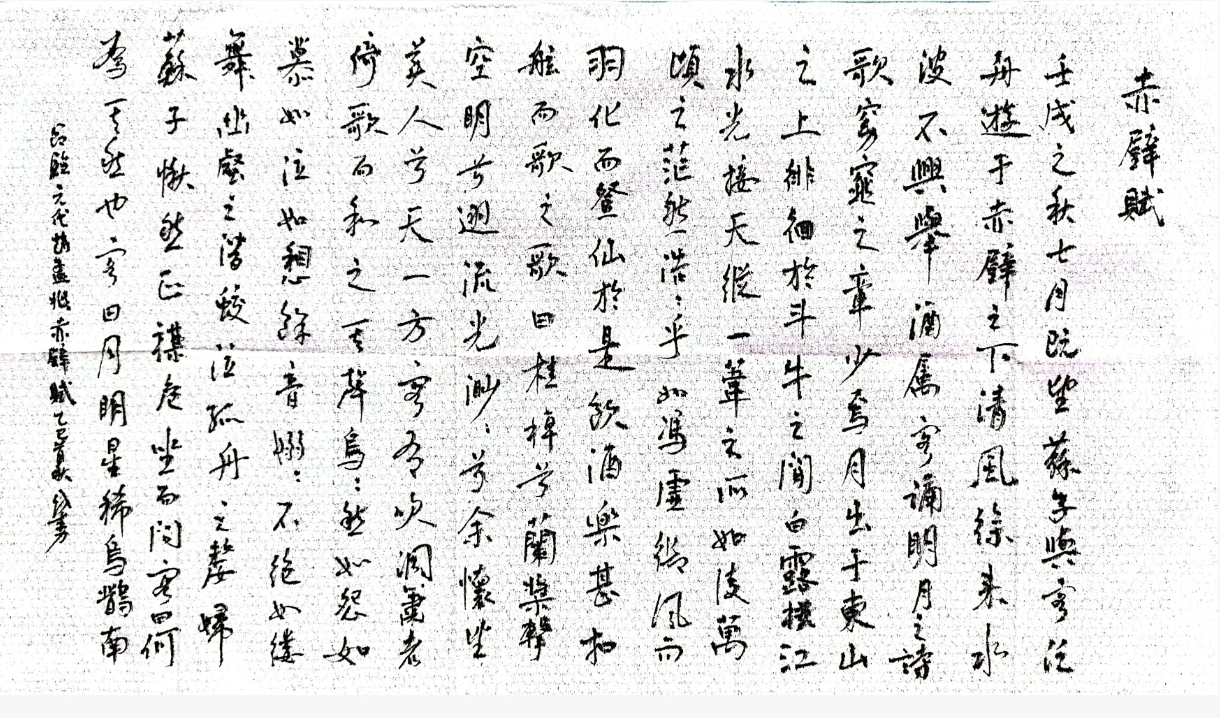 赤壁賦
壬戌之秋七月既望蘇子與客泛
舟遊于赤壁之下清風徐來水
波不興舉酒屬客誦明月之詩
歌窈窕之章少焉月出于東山
之上徘徊於斗牛之間白露橫江
水光接天縱一葦之所如凌萬
頃之茫然浩〻乎如馮虛御風而
羽化而登仙於是飲酒樂甚扣
舷而歌之歌曰桂棹兮蘭槳擊
空明兮遡流光渺〻兮余懷望
美人兮天一方客有吹洞簫者
倚歌而和之其聲烏〻然如怨如
慕如泣如想餘音嫋〻不絕如縷
舞幽壑之潛蛟泣孤舟之嫠婦
蘇子愀然正襟危坐而問客曰何
為其然也客曰月明星稀烏鵲南
元代趙孟頫赤壁賦乙巳夏